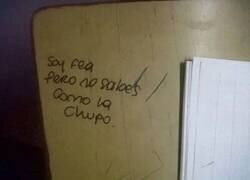 Soy fea
pero no sabes
como la
chupo.